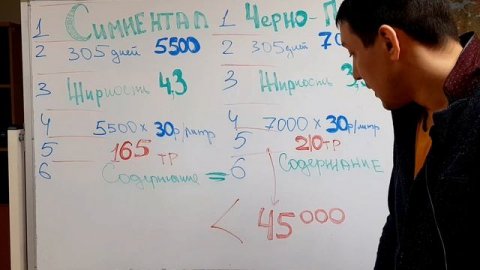 1 Симментал
2 305 дней 5500
3 Жирность 4,3
4 5500 x 30р/литр
5 165 тр
6 Содержание =
1 Черно-П
2 305 дней 70
3 Жирность 3,
4 7000 x 30р/литр
5 210 тр
6 Содержание
< 45000